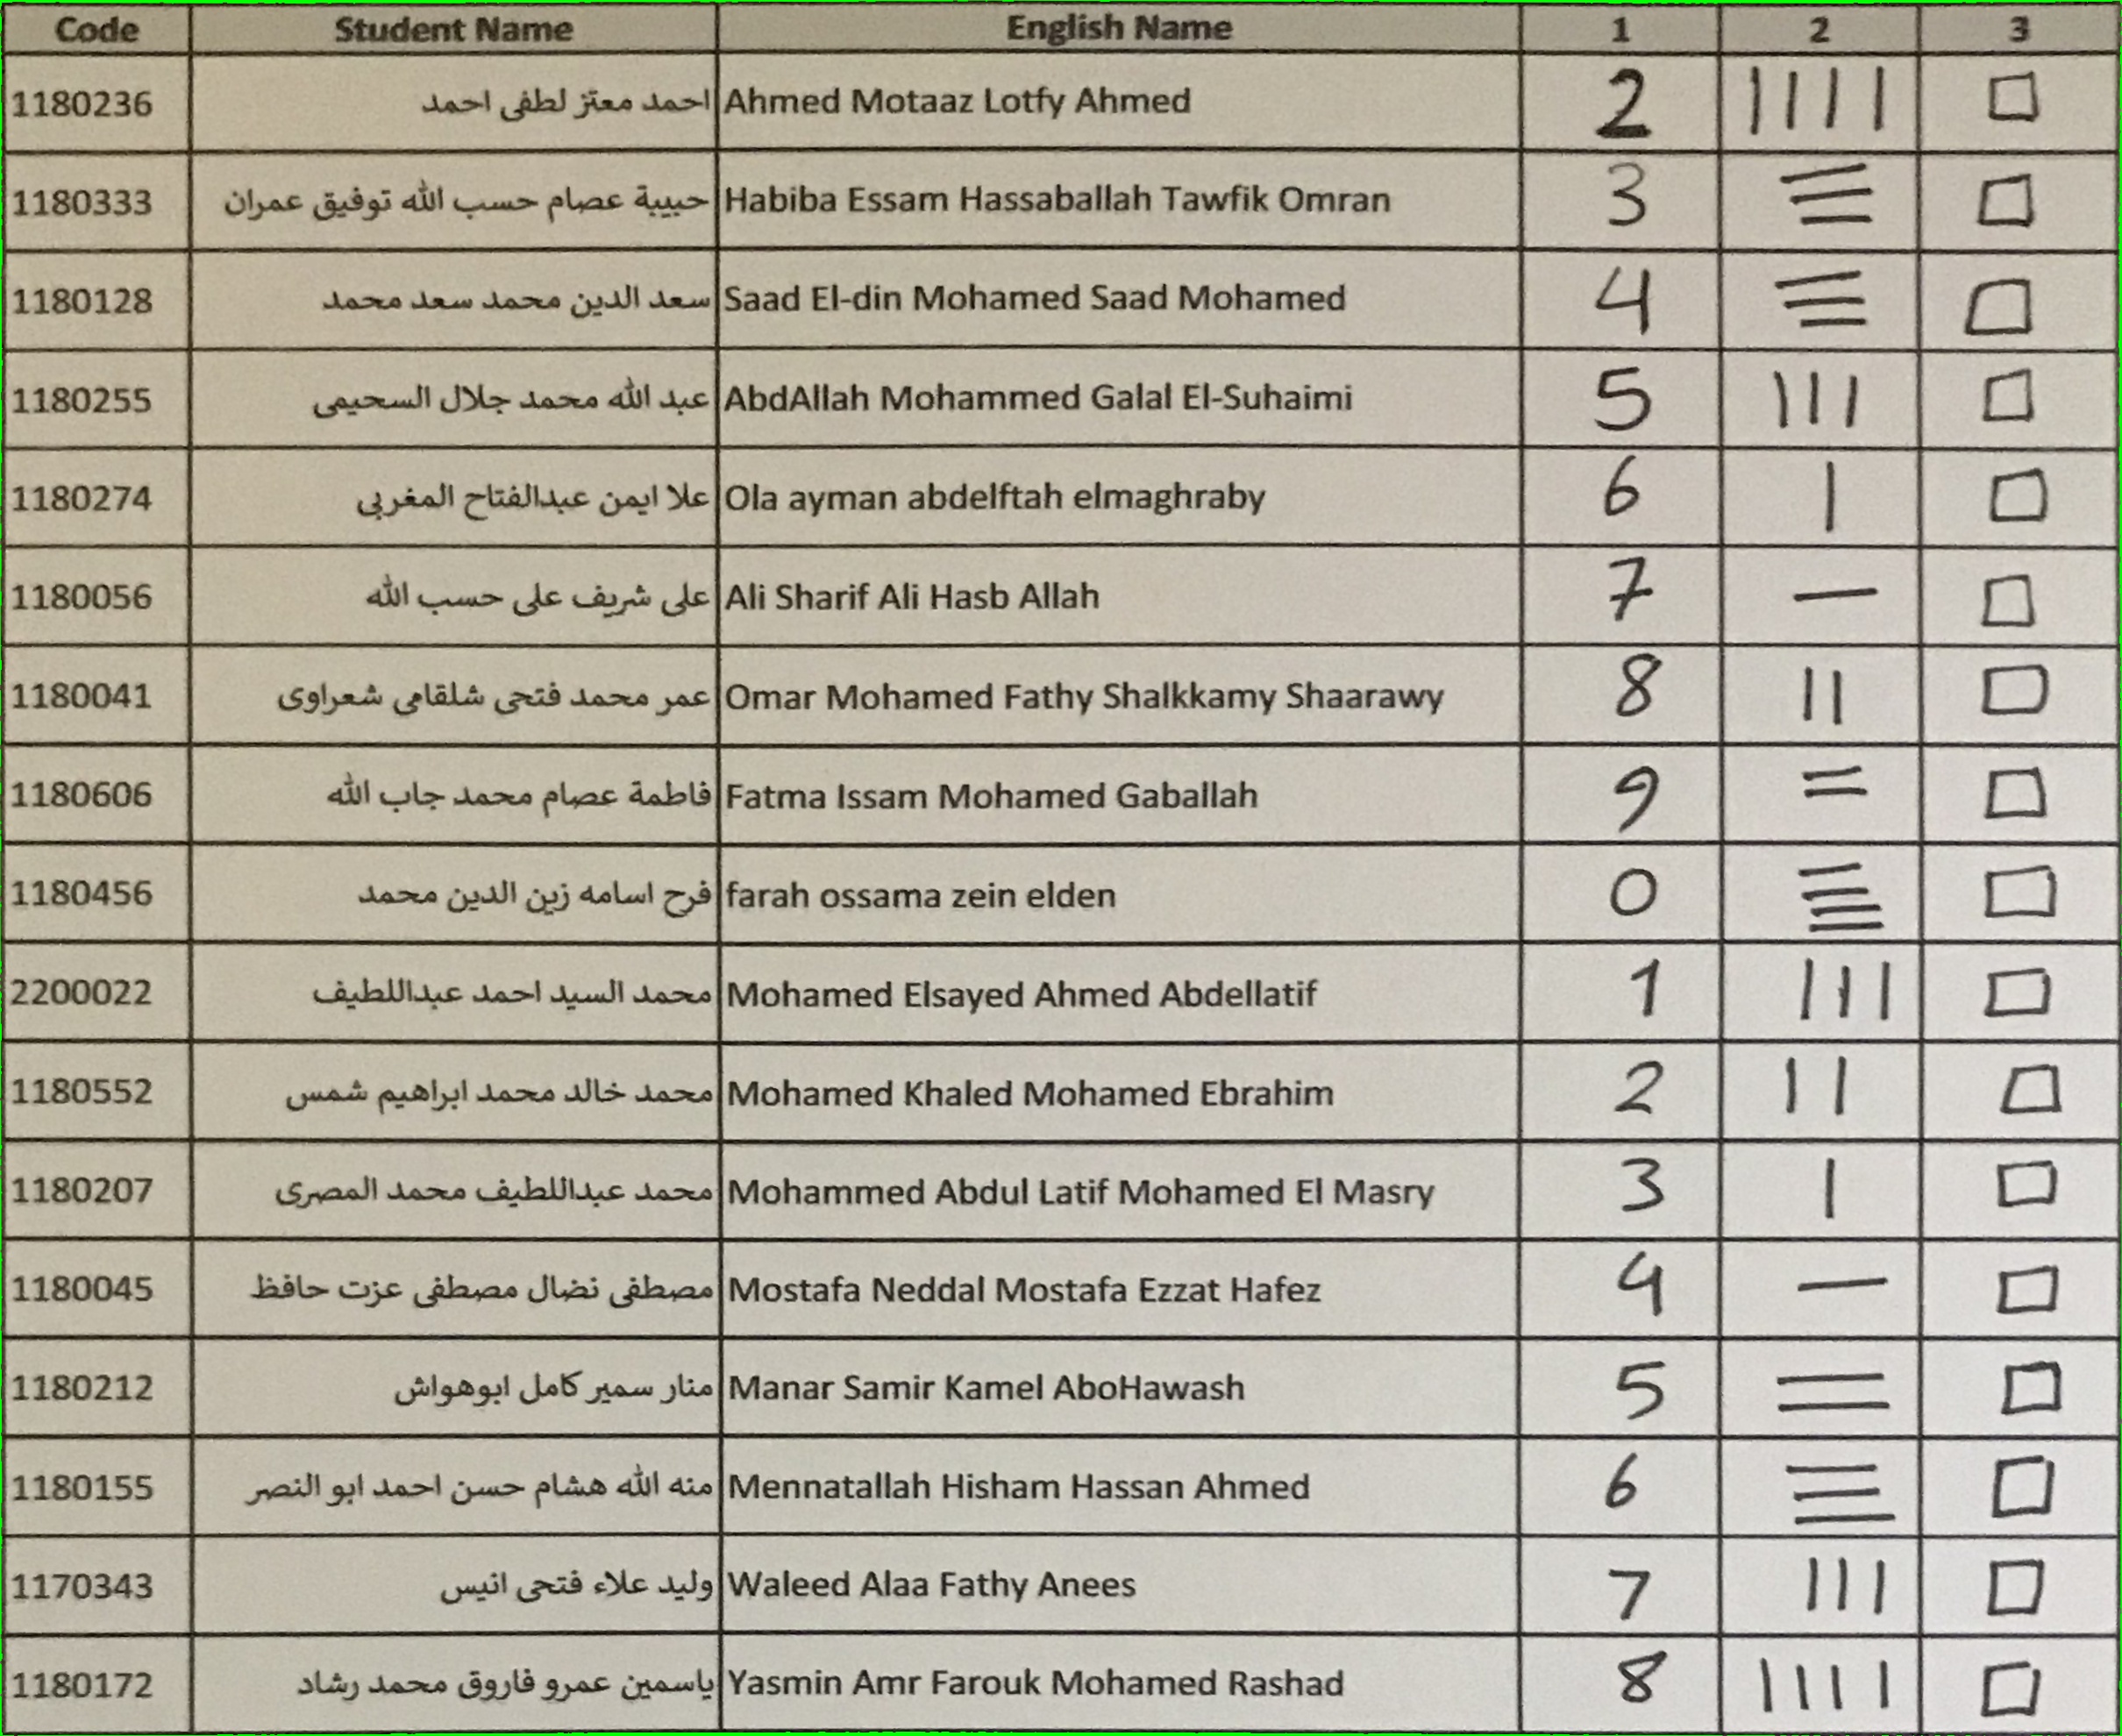 Code Student Name English Name 1 2 3
1180236 احمد معتز لطفى احمد Ahmed Motaaz Lotfy Ahmed 2 | | | | □
1180333 حبيبة عصام حسب الله توفيق عمران Habiba Essam Hassaballah Tawfik Omran 3 ☰ □
1180128 سعد الدين محمد سعد محمد Saad El-din Mohamed Saad Mohamed 4 ☰ □
1180255 عبد الله محمد جلال السحيمى AbdAllah Mohammed Galal El-Suhaimi 5 | | | □
1180274 علا ايمن عبدالفتاح المغربى Ola ayman abdelftah elmaghraby 6 | □
1180056 على شريف على حسب الله Ali Sharif Ali Hasb Allah 7 — □
1180041 عمر محمد فتحى شلقامى شعراوى Omar Mohamed Fathy Shalkkamy Shaarawy 8 | | □
1180606 فاطمة عصام محمد جاب الله Fatma Issam Mohamed Gaballah 9 = □
1180456 فرح اسامه زين الدين محمد farah ossama zein elden 0 𝄘 □
2200022 محمد السيد احمد عبداللطيف Mohamed Elsayed Ahmed Abdellatif 1 | | | □
1180552 محمد خالد محمد ابراهيم شمس Mohamed Khaled Mohamed Ebrahim 2 | | □
1180207 محمد عبداللطيف محمد المصرى Mohammed Abdul Latif Mohamed El Masry 3 | □
1180045 مصطفى نضال مصطفى عزت حافظ Mostafa Neddal Mostafa Ezzat Hafez 4 — □
1180212 منار سمير كامل ابوهواش Manar Samir Kamel AboHawash 5 = □
1180155 منه الله هشام حسن احمد ابو النصر Mennatallah Hisham Hassan Ahmed 6 ☰ □
1170343 وليد علاء فتحى انيس Waleed Alaa Fathy Anees 7 | | | □
1180172 ياسمين عمرو فاروق محمد رشاد Yasmin Amr Farouk Mohamed Rashad 8 | | | | □